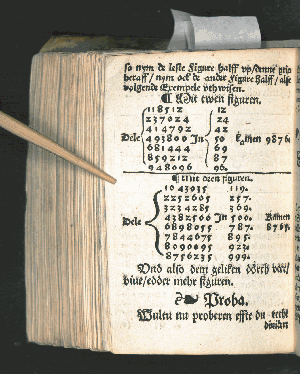 so nym de leste Figure halff vp/denne
heraff/ nym ock de ander Figure halff/ alse
volgende Exempele vthwisen.
¶ Mit twen figuren.
118512 12
237024 24
414792 42
Dele 493800 In 50 kamen 9876
681444 69
859212 87
948096 96.
¶ Mit dren figuren.
1043035 119.
2252605 257.
3234285 369.
Dele 4382500 In 500. Kamen
6898055 787. 8765.
7844675 895.
8090095 923.
8756235 999.
Vnd also dem geliken dörch ver/
viue/edder mehr figuren.
Proba.
Wultu nu proberen effte du recht